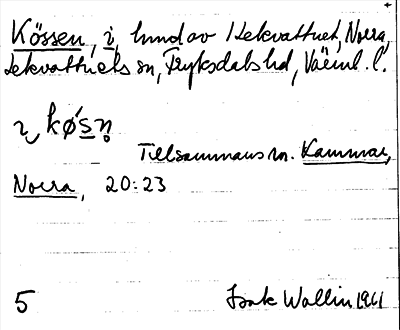 Kössen, i, hmd av Lekvattnet, Norra,
Lekvattnets sn, Fryksdals hd, Värml. l.
i kǿsn̥
Tillsammans m. Kammar,
Norra, 20:23
5 Isak Wallin 1961